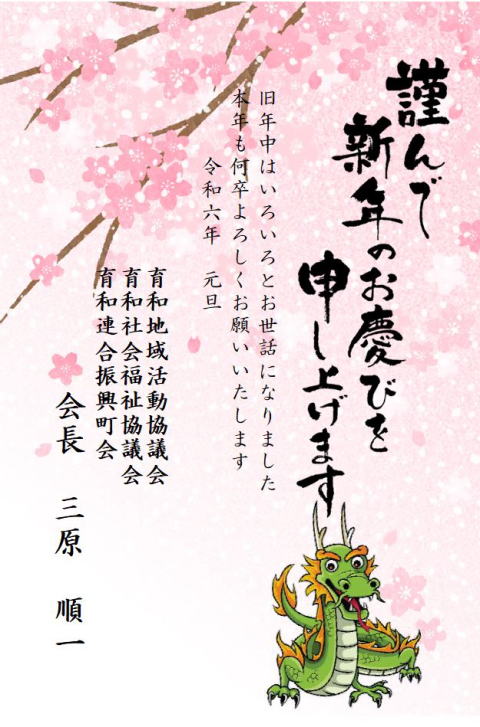 謹んで
新年のお慶びを
申し上げます
旧年中はいろいろとお世話になりました
本年も何卒よろしくお願いいたします
令和六年　元旦
育和地域活動協議会
育和社会福祉協議会
育和連合振興町会
会長　三原　順一